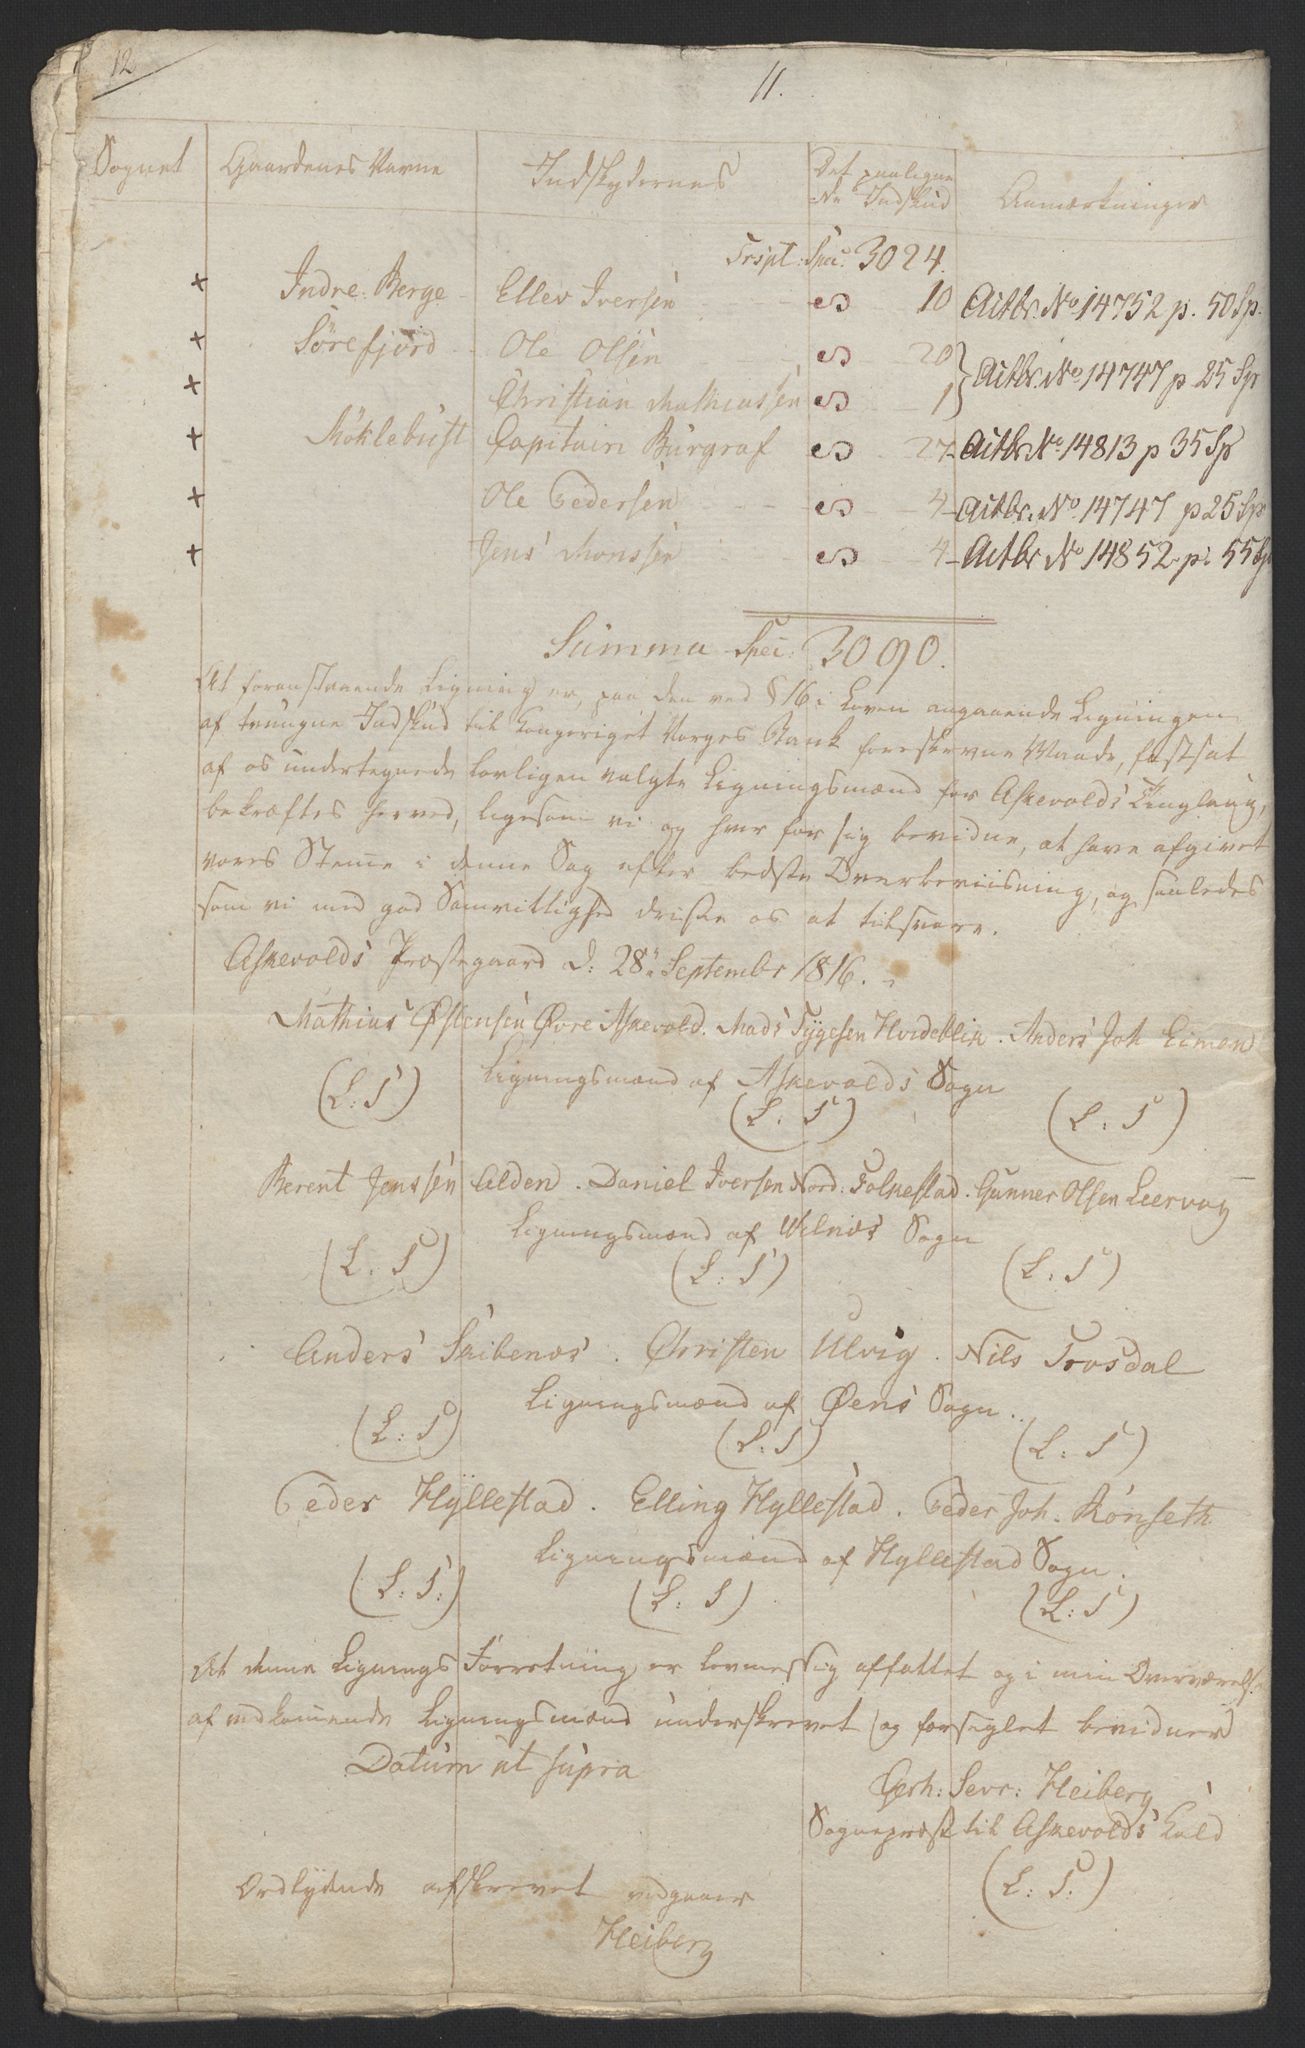 12
11.
Sognet Gaardenes Navne Indskydernes Det paaligne
de Indskud Anmærkninger
Trspt: Spec: 3024.
+ Indre Berge Ellev Iversen 10 Actbr. No 14752 p. 50 Sp.
+ Sørefjord Ole Olsen 20 } Actbr. No 14747 p 25 Sp
+ Christian Mathiassen 1
+ Møklebust Capitain Burgraf 27 Actbr No 14813 p 35 Sp
+ Ole Pedersen 4 Actbr. No 14747 p 25 Sp
+ Jens Monssen 4 Actbr No 14852 p: 55 Sp
Summa Spec: 3090.
At foranstaaende Ligning er, paa den ved §16 i Loven angaaende Ligningen
af tvungne Indskud til Kongeriget Norges Bank foreskrevne Maade, fastsat
af os undertegnede lovligen valgte Ligningsmænd for Askevolds Tinglaug,
bekræftes herved, ligesom vi og hver for sig bevidne, at have afgivet
vores Stemme i denne Sag efter bedste Overbeviisning, og saaledes
som vi med god Samvittighed driste os at tilsvare.
Askevolds Præstegaard d: 28de September 1816.
Mathias Østensen Øvre Askevold. Mads Tygesen Hvideblik. Anders Joh Eimen
Ligningsmænd af Askevolds Sogn
(L: S) (L. S) (L. S)
Berent Jenssen Alden. Daniel Iversen Nord: Folkestad. Gunner Olsen Leervog
Ligningsmænd af Wilnæs Sogn
(L. S) (L: S) (L. S)
Anders Skibenæs. Christen Ulvig. Nils Trosdal
Ligningsmænd af Øens Sogn.
(L: S) (L: S) (L: S)
Peder Hyllestad. Elling Hyllestad. Peder Joh. Rønseth
Ligningsmænd af Hyllestad Sogn.
(L: S:) (L: S) (L: S)
At denne Lignings Forretning er lovmessig affattet og i min Overværelse
af vedkommende Ligningsmænd underskrevet og forseglet bevidner
Datum ut supra
Gerh: Sevr: Heiberg
Sognepræst til Askevolds Kald
(L: S.)
Ordlydende afskrevet vidgaaer
Heiberg